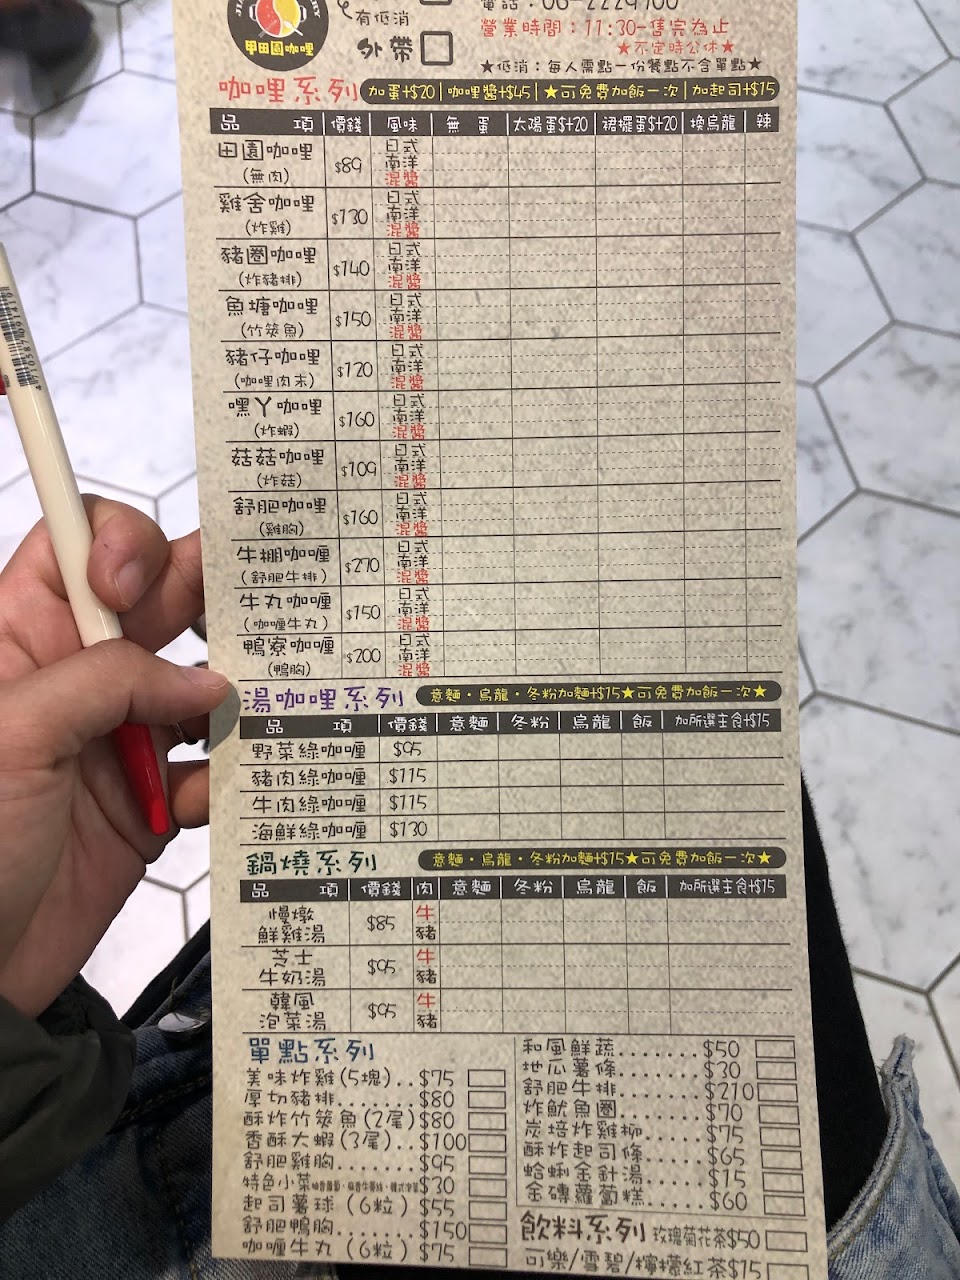 有低消
外帶
電話：06-2229700
營業時間：11:30-售完為止
★不定時公休★
★低消：每人需點一份餐點不含單點★
甲田園咖哩
咖哩系列 加蛋+$20|咖哩醬+$45|★可免費加飯一次|加起司+$15
品項 價錢 風味 無蛋 太陽蛋$+20 裙襬蛋$+20 換烏龍 辣
田園咖哩 (無肉) $89 日式 南洋 混醬
雞舍咖哩 (炸雞) $130 日式 南洋 混醬
豬圈咖哩 (炸豬排) $140 日式 南洋 混醬
魚塘咖哩 (竹筴魚) $150 日式 南洋 混醬
豬仔咖哩 (咖哩肉末) $120 日式 南洋 混醬
嘿丫咖哩 (炸蝦) $160 日式 南洋 混醬
菇菇咖哩 (炸菇) $109 日式 南洋 混醬
舒肥咖哩 (雞胸) $160 日式 南洋 混醬
牛棚咖喱 (舒肥牛排) $270 日式 南洋 混醬
牛丸咖喱 (咖喱牛丸) $150 日式 南洋 混醬
鴨寮咖喱 (鴨胸) $200 日式 南洋 混醬
湯咖哩系列 意麵・烏龍・冬粉加麵+$15★可免費加飯一次★
品項 價錢 意麵 冬粉 烏龍 飯 加所選主食+$15
野菜綠咖喱 $95
豬肉綠咖喱 $115
牛肉綠咖喱 $115
海鮮綠咖喱 $130
鍋燒系列 意麵・烏龍・冬粉加麵+$15★可免費加飯一次★
品項 價錢 肉 意麵 冬粉 烏龍 飯 加所選主食+$15
慢燉鮮雞湯 $85 牛 豬
芝士牛奶湯 $95 牛 豬
韓風泡菜湯 $95 牛 豬
單點系列
美味炸雞(5塊)..$75
厚切豬排.......$80
酥炸竹筴魚(2尾)$80
香酥大蝦(3尾)..$100
舒肥雞胸.......$95
特色小菜 $30
起司薯球(6粒)$55
舒肥鴨胸.......$150
咖喱牛丸(6粒)$75
和風鮮蔬.......$50
地瓜薯條.......$30
舒肥牛排.......$210
炸魷魚圈.......$70
炭培炸雞柳.....$75
酥炸起司條.....$65
蛤蜊金針湯.....$15
金磚蘿蔔糕.....$60
飲料系列 玫瑰菊花茶$50
可樂/雪碧/檸檬紅茶$15